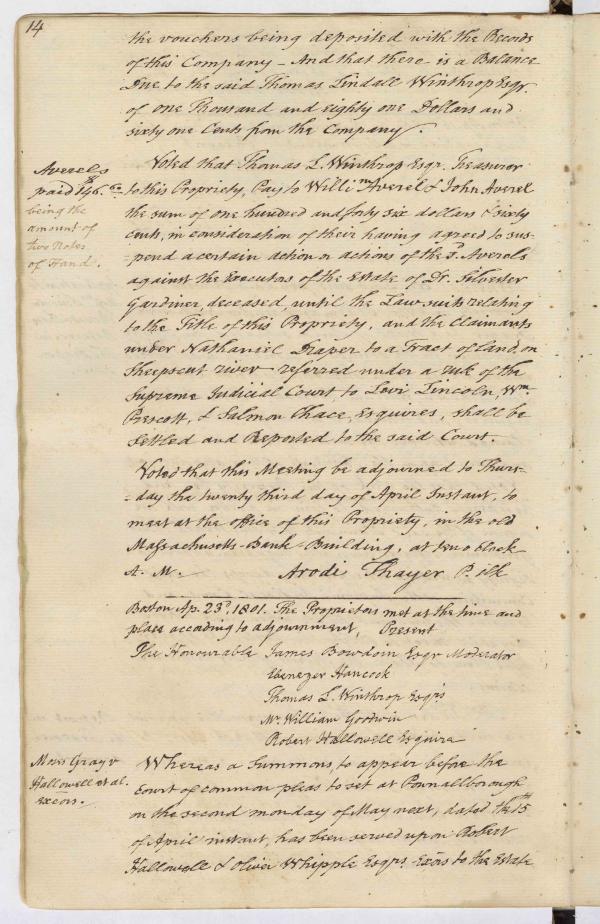 14
the vouchers being deposited with the Records
of this Company – And that there is a Balance
Due to the said Thomas Lindall Winthrop Esqr.
of one Thousand and eighty one Dollars and
sixty one Cents from the Company.
Averels
paid 146.60
being the
amount of
two Notes
of Hand.
Voted that Thomas L. Winthrop Esqr. Treasurer
to this Propriety, Pay to Willim Averel & John Averel
the sum of one hundred and forty six dollars & sixty
Cents, in consideration of their having agreed to sus-
-pend a certain action or actions of the sd. Averels
against the Executors of the Estate of Dr. Silvester
Gardiner, deceased, until the Law suits relating
to the Title of this Propriety, and the Claimants
under Nathaniel Draper to a Tract of Land, on
Sheepscut river referred under a rule of the
Supreme Judicial Court to Levi Lincoln, Wm.
Prescott, & Salmon Chace, Esquires, shall be
settled and Reported to the said Court.
Voted that this Meeting be adjourned to Thurs-
-day the twenty third day of April Instant, to
meet at the office of this Propriety, in the old
Massachusetts-Bank-Building, at ten o Clock
A. M. Arodi Thayer P. Clk
Boston Ap. 23d, 1801. The Proprietors met at the time and
place according to adjournment, Present
The Honourable James Bowdoin Esqr Moderator
Ebenezer Hancock
Thomas L. Winthrop Esqrs
Mr. William Goodwin
Robert Hallowell Esquire
Moses Gray v
Hallowell et al.
Exōrs.
Whereas a Summons, to appear before the
Court of common pleas to set at Pownallborough
on the second monday of May next, dated the 15th
of April instant, has been served upon Robert
Hallowell & Oliver Whipple Esqrs. Exōrs to the Estate